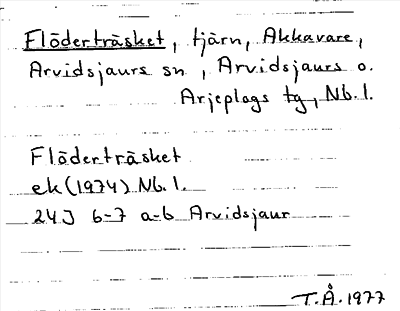 Flöderträsket, tjärn, Akkavare,
Arvidsjaurs sn, Arvidsjaurs o.
Arjeplogs tg, Nb. l.
Flöderträsket
ek (1974) Nb. l.
24J 6-7 a-b Arvidsjaur
T.Å. 1977